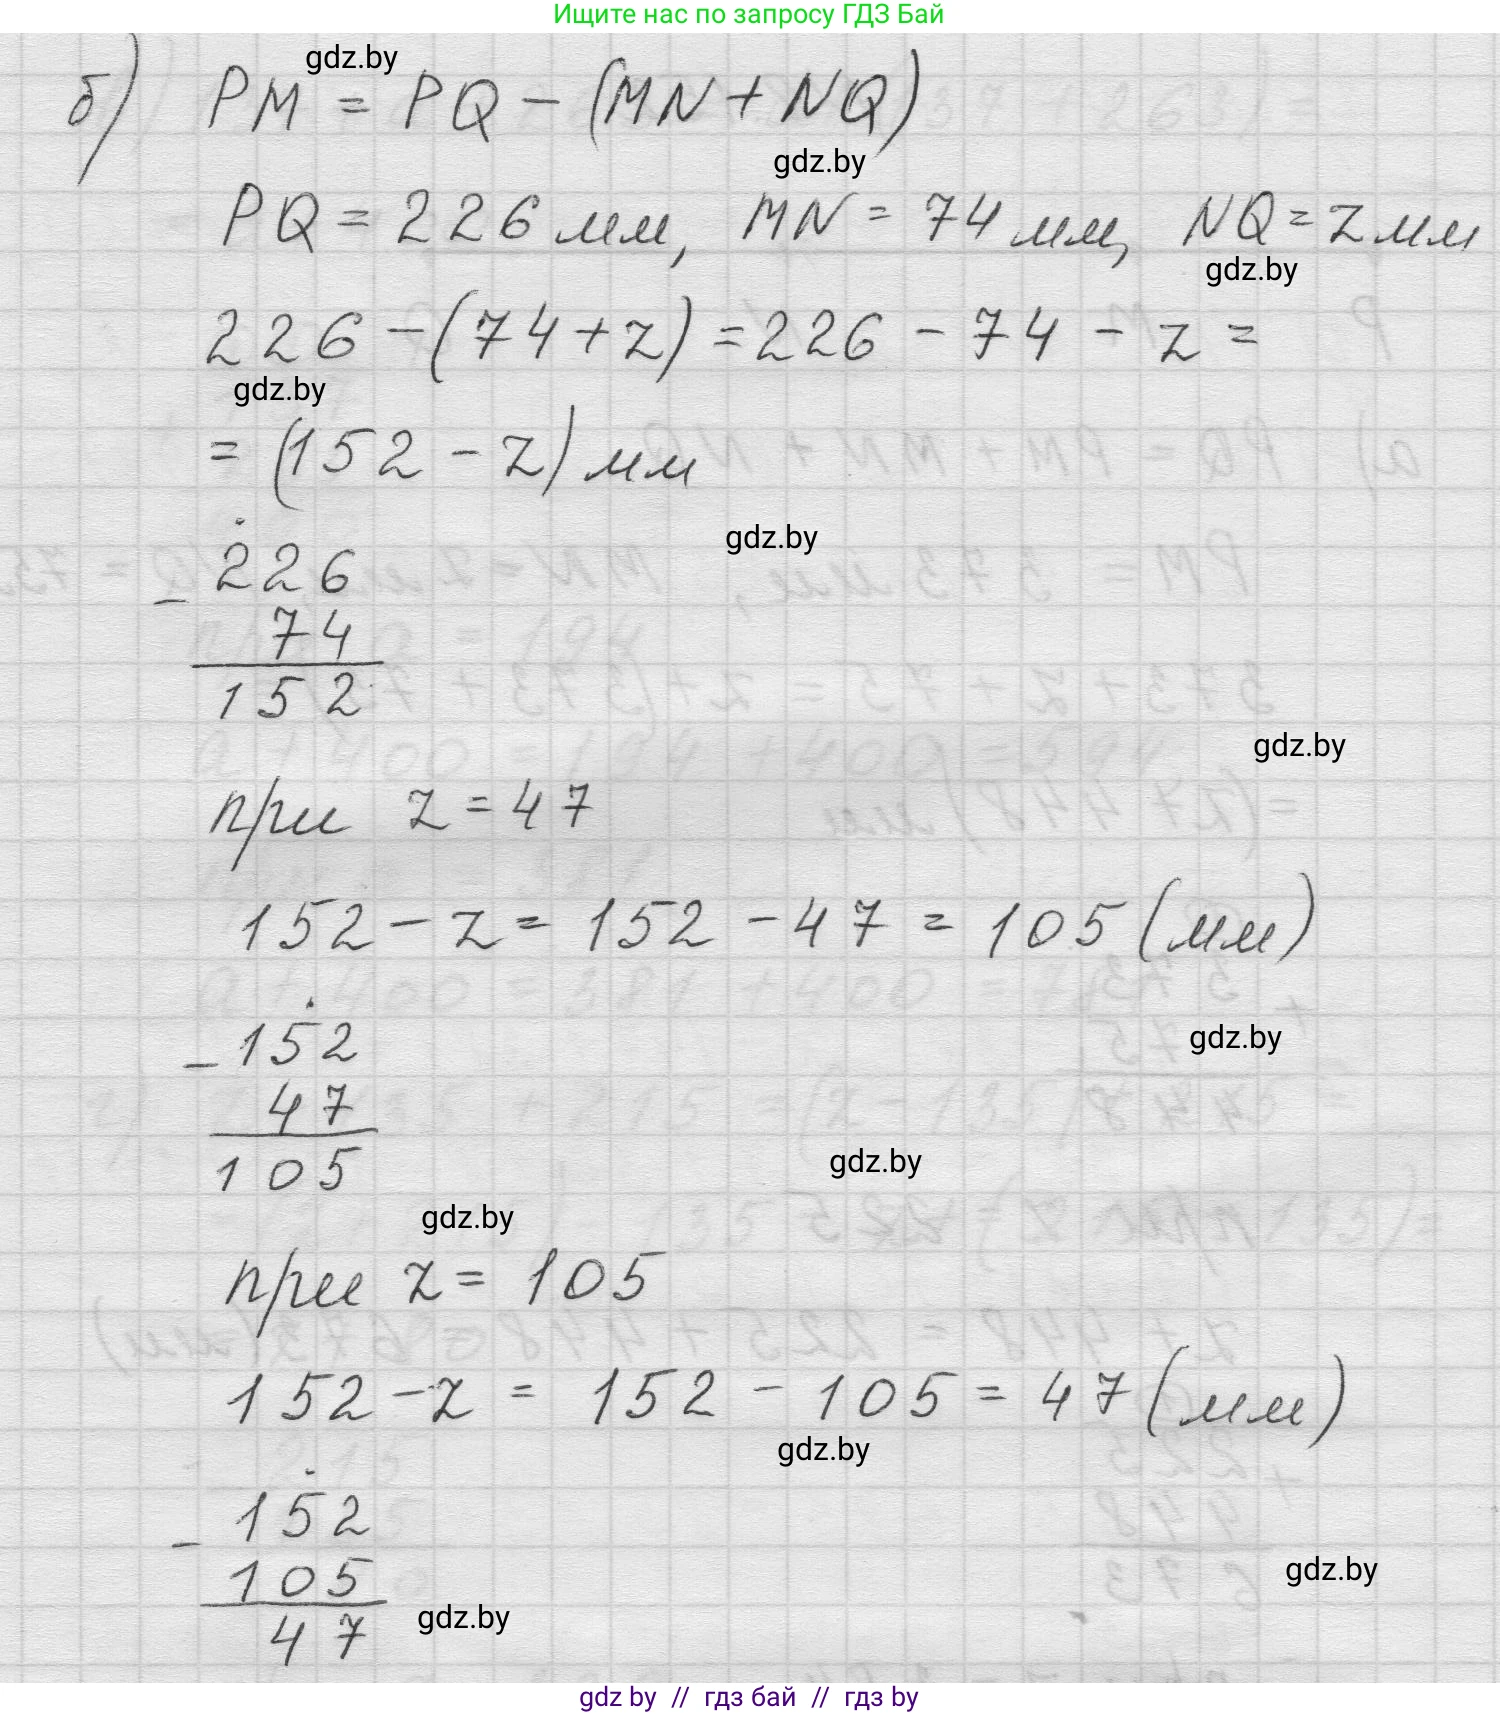 Ищите нас по запросу ГДЗ Бай
gdz.by
б) PM = PQ - (MN + NQ)
gdz.by
PQ = 226 мм, MN = 74 мм, NQ = z мм
gdz.by
226 - (74 + z) = 226 - 74 - z =
gdz.by
= (152 - z) мм
gdz.by
226
- 74
152
gdz.by
при z = 47
152 - z = 152 - 47 = 105 (мм)
gdz.by
152
- 47
105
gdz.by
gdz.by
при z = 105
152 - z = 152 - 105 = 47 (мм)
gdz.by
152
- 105
47
gdz.by
gdz.by
gdz by // гдз бай // гдз by